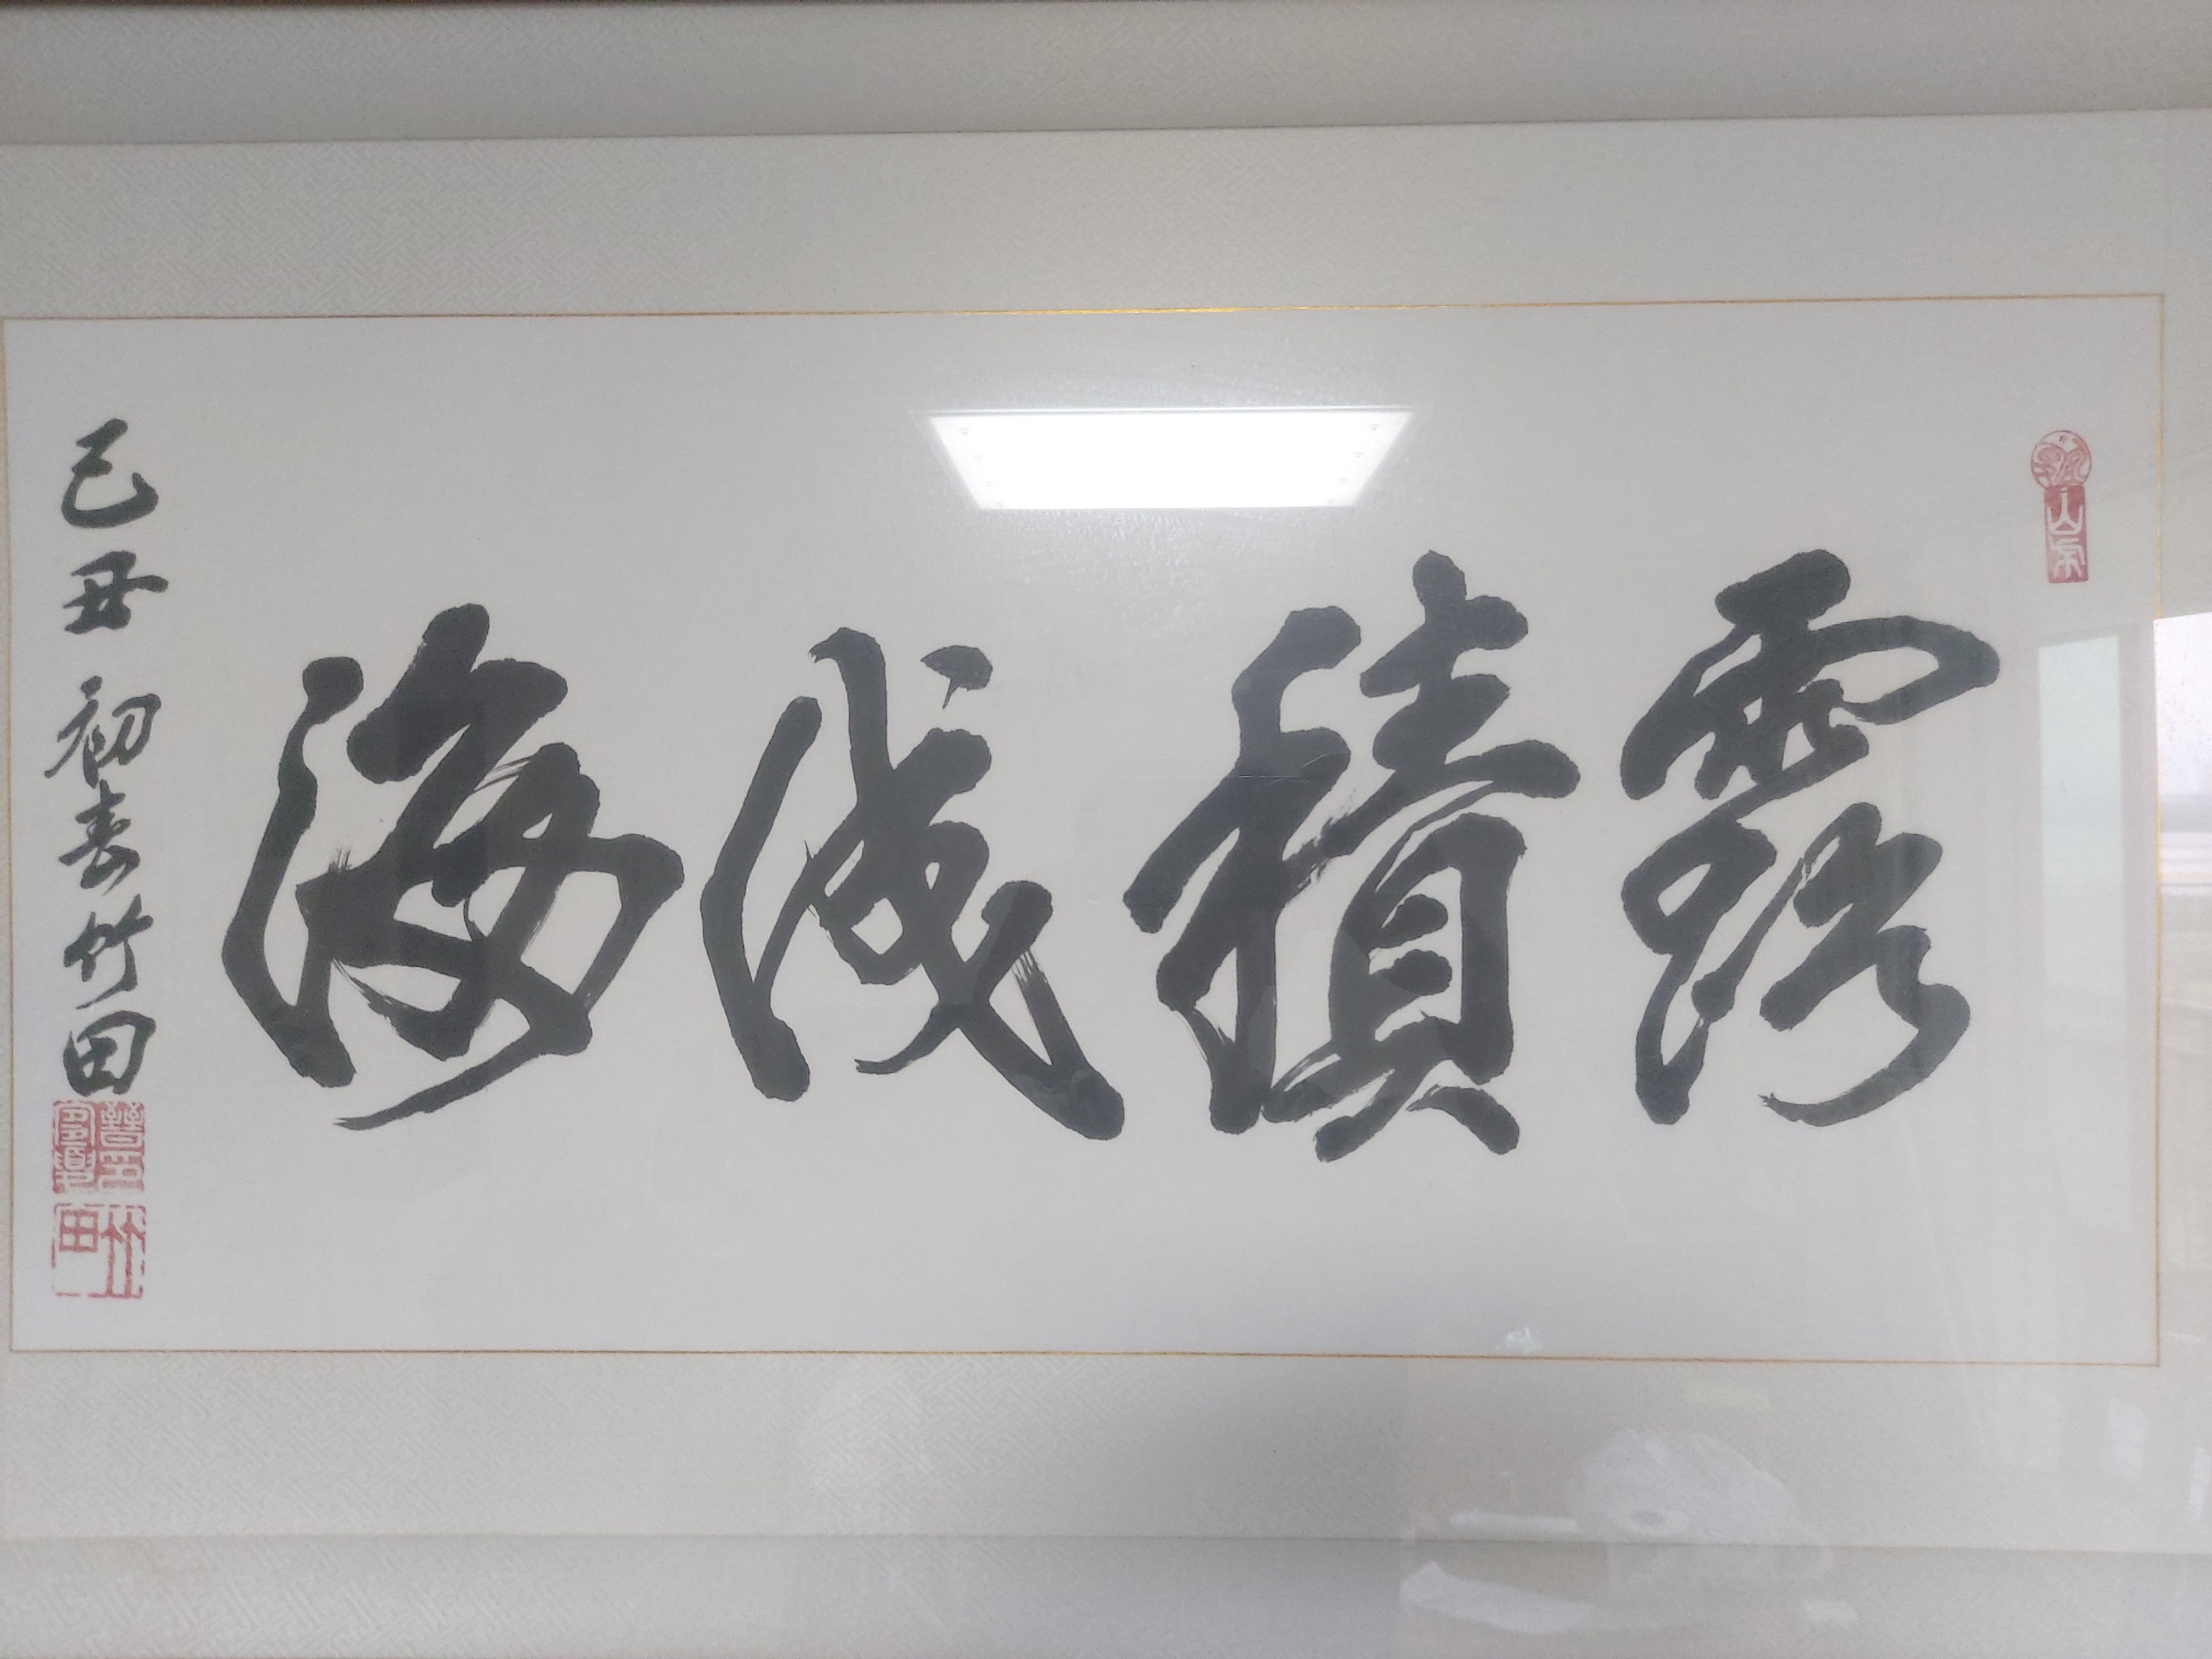 露積成海
己丑初春竹田
竹田